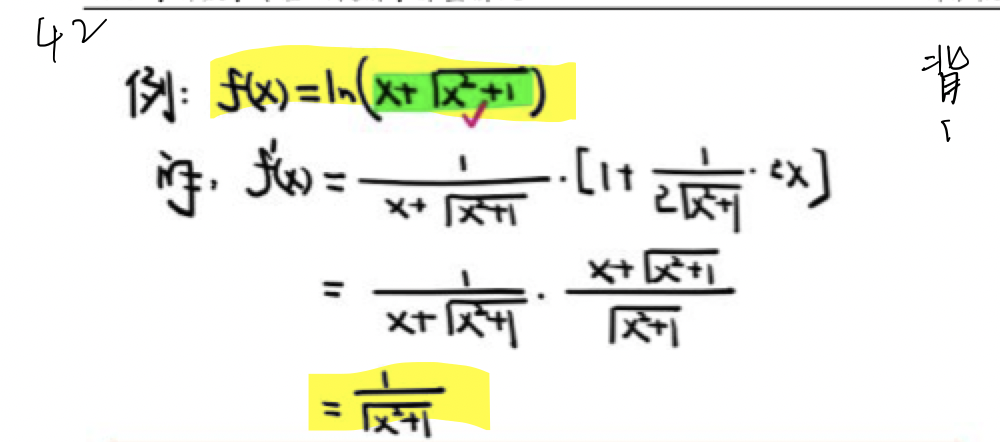 42
例: f(x)=ln(x+√(x²+1))
背
f'(x) = 1/(x+√(x²+1)) · [1+ 1/(2√(x²+1)) · 2x]
= 1/(x+√(x²+1)) · (x+√(x²+1))/√(x²+1)
= 1/√(x²+1)